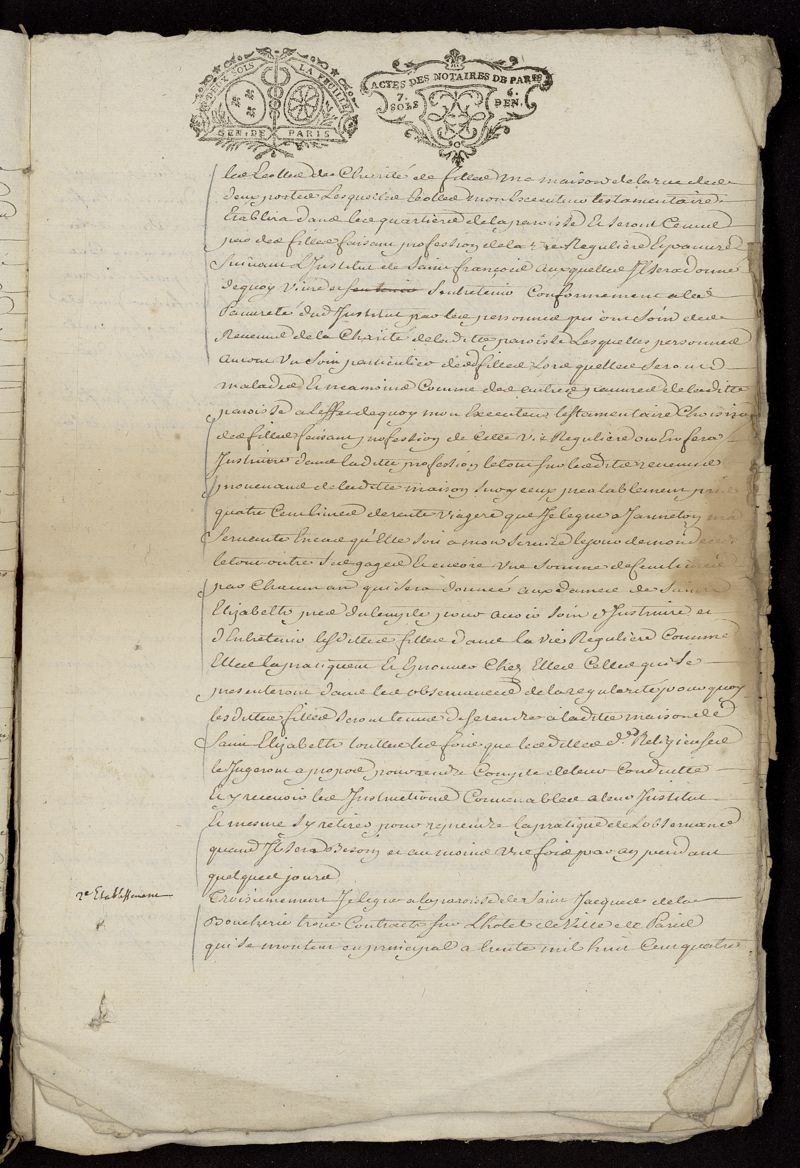 DEUX SOLS LA FEUILLE
GEN. DE PARIS
ACTES DES NOTAIRES DE PARIS
7. SOLS 6. DEN.
les Ecolles de Charité de filles ma maison de la rue des
deux portes Lesquelles Ecolles mon Executeur testamentaire
Etablira dans les quartiers de la paroisse Et seront tenues
par des filles faisant profession de la vie Reguliere Et pauvre
suivant L'Institut de Saint françois auxquelles Il sera donné
dequoy vivre et s'entretenir Conformement a la
Pauvreté dud Institut par les personnes qui ont soin des
Revenus de la Charité de laditte paroisse Lesquelles personnes
auront un soin particulier desd filles Lors quelles seront
malades Et mesme Comme des autres pauvres de laditte
paroisse a Leffet dequoy mon Executeur testamentaire Choisira
des filles faisant profession de Cette vie Reguliere ou En fera
Instruire dans laditte profession le tout sur lesdits revenus
provenans de laditte maison sur yceux prealablement pris
quatre Cent livres de rente viagere que Je legue a Janneton ma
servante Encas qu'Elle soit a mon service le jour de mon deces
le tout outre ses gages Et encore une somme de Cent livres
par Chacun an qui sera donnée aux dames de Sainte
Elizabeth pres du temple pour avoir soin d'Instruire et
d'Entretenir lesdittes filles dans la vie Reguliere Comme
Elles la pratiquent Et Eprouver Chez Elles Celles qui se
presenteront dans les observances de la regularité pourquoy
lesdittes filles seront tenues de se rendre a laditte maison de
Saint Elizabeth touttes les fois que lesdittes d. Religieuses
le Jugeront a propos pour rendre Compte de leur Conduitte
Et y recevoir les Instructions Convenables a leur Institut
Et mesme s'y retirer pour reprendre la pratique de L'observance
quand Il sera Besoin et au moins une fois par an pendant
quelques jours
2e Etablissement
Troisiemement Je legue a la paroisse de Saint Jacques de la
Boucherie trois Contracts sur L'hotel de Ville de Paris
qui se montent en principal a trente mil huit Cent quatre